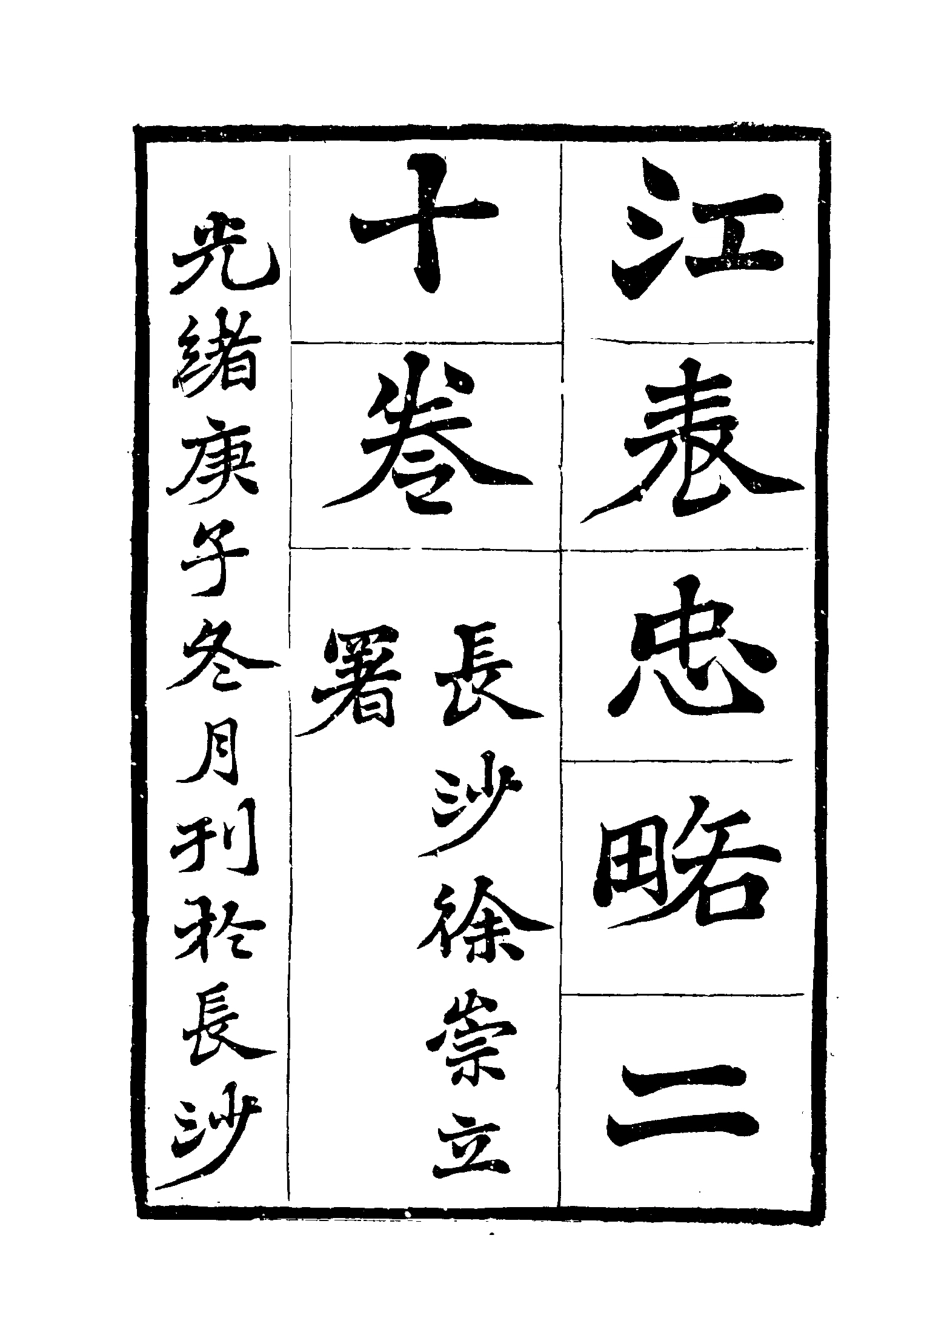 江表忠略二
十卷
長沙徐崇立
署
光緒庚子冬月刊於長沙